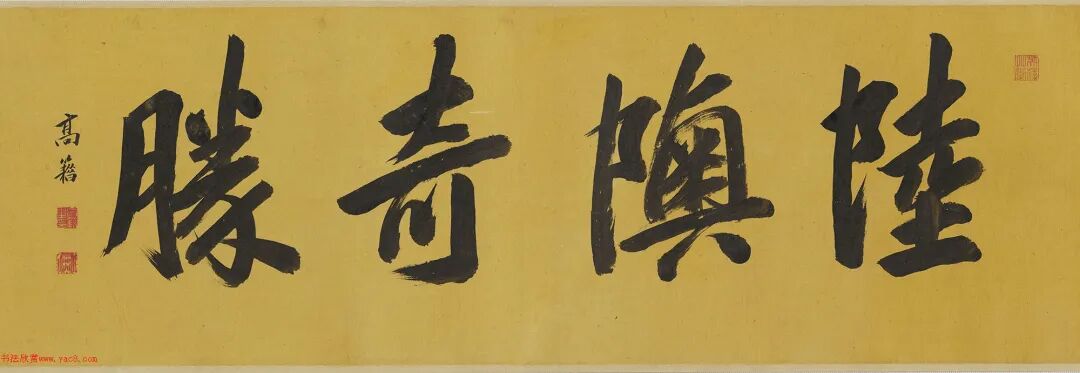 陸隩奇勝
高簷
书法欣赏www.yac8.com